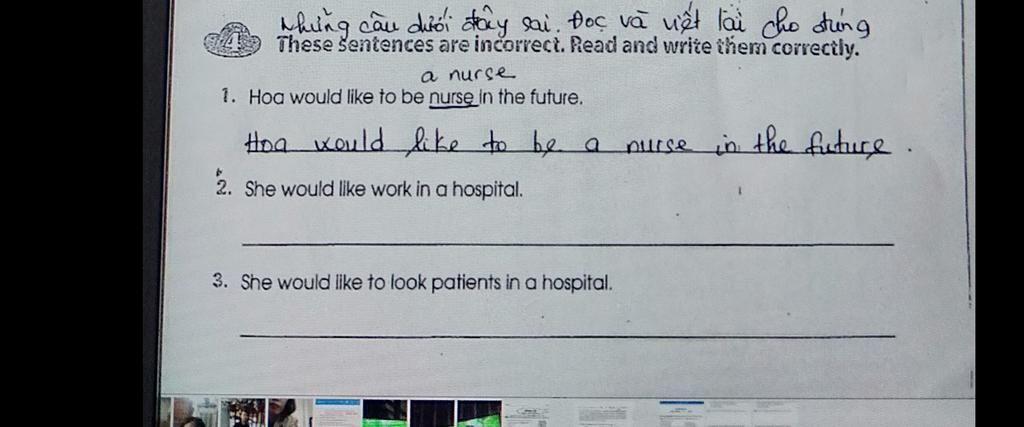 Những câu dưới đây sai. Đọc và viết lại cho đúng
4 These sentences are incorrect. Read and write them correctly.
a nurse
1. Hoa would like to be nurse in the future.
Hoa would like to be a nurse in the future.
2. She would like work in a hospital.
3. She would like to look patients in a hospital.